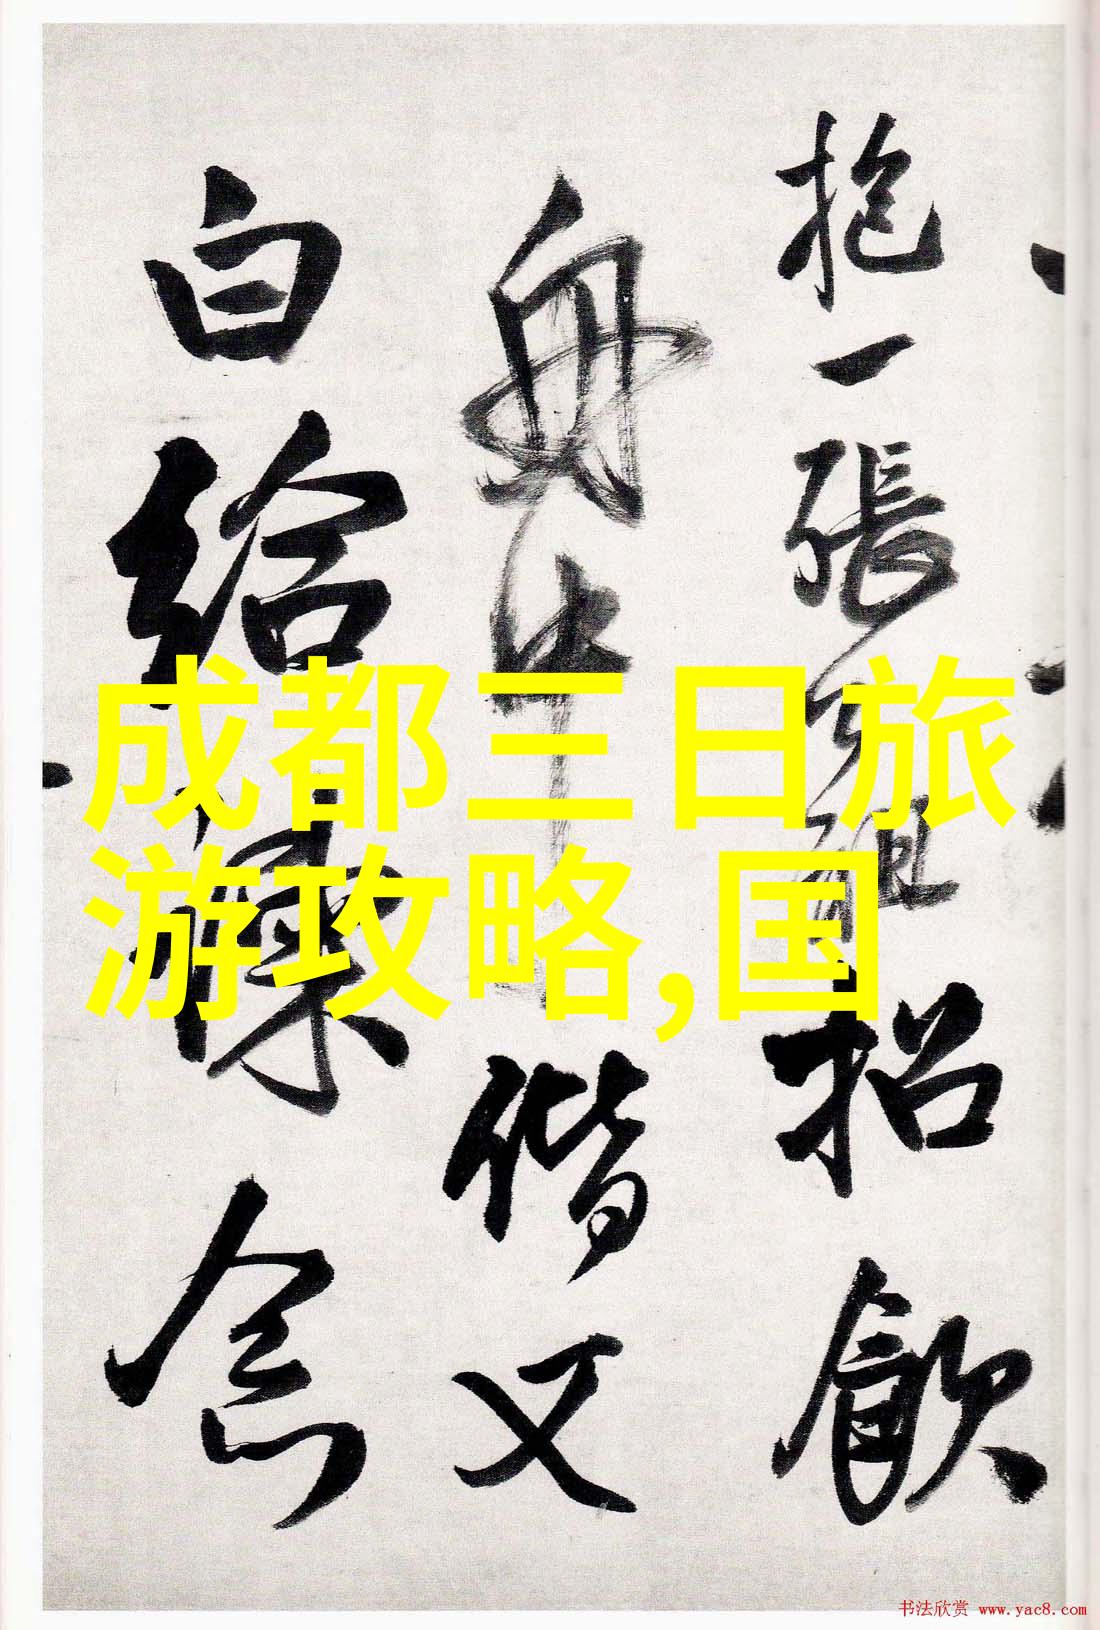 抱一張子祖招飲
舟中偕又
白給諫念
成都三日旅
游攻略,国
书法欣赏 www.yac8.com